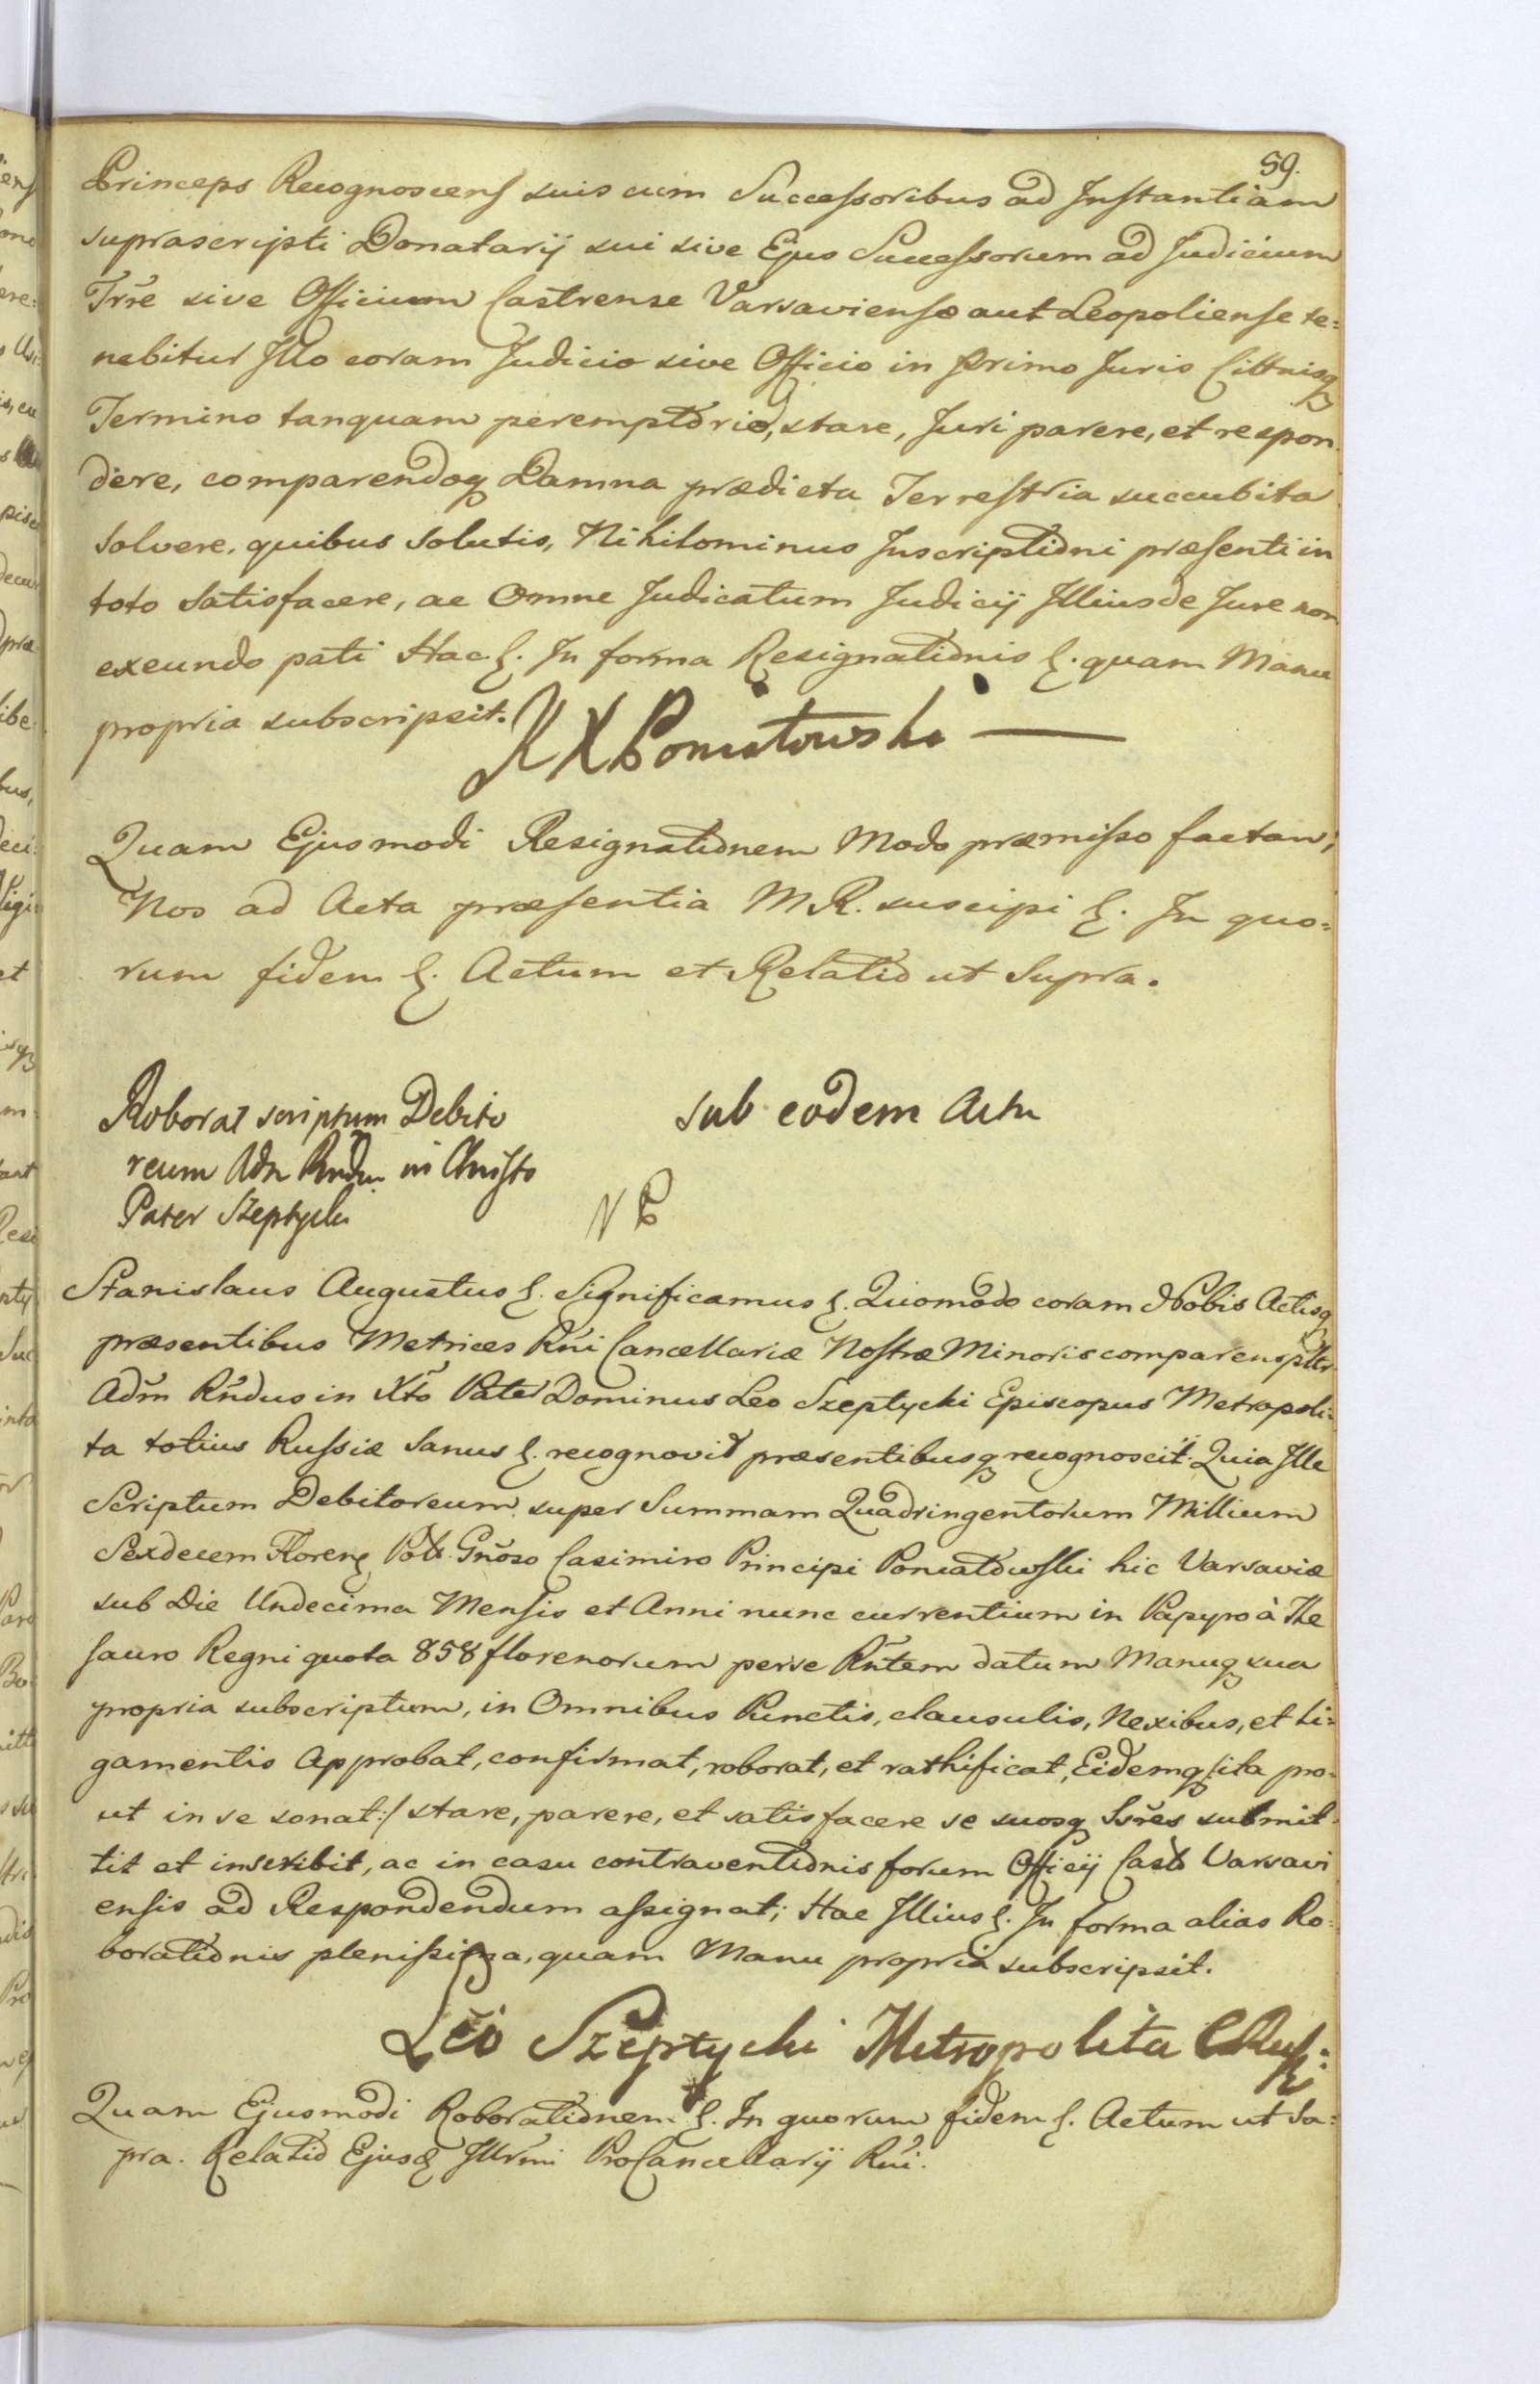 59.
Princeps Recognoscens suis cum Successoribus ad Instantiam
suprascripti Donatarij sui sive Ejus Successorum ad Judicium
Trre sive Officium Castrense Varsaviense aut Leopoliense te=
nebitur Illo coram Judicio sive Officio in Primo Juris Cittnisq
Termino tanquam peremptorio, stare, Juri parere, et respon
dere, comparendoq Damna prædicta Terrestria succubita
solvere, quibus solutis, Nihilominus Inscriptioni præsenti in
toto satisfacere, ac Omne Judicatum Judicij Illius de Jure non
exeundo pati Hac &. In forma Resignationis &. quam Manu
propria subscripsit.
K X Poniatowski —
Quam Ejusmodi Resignationem Modo præmisso factam,
Nos ad Acta præsentia M.R. suscipi &. In quo=
rum fidem &. Actum et Relatio ut Supra.
Roborat scriptum Debito
reum Adm Rndu in Christo
Pater Szeptycki
sub eodem Actu
N P
Stanislaus Augustus &. Significamus &. Quomodo coram Nobis Actisq
præsentibus Metrices Rni Cancellariæ Nostræ Minoris comparens plter
Adm Rndus in Xto Pater Dominus Leo Szeptycki Episcopus Metropoli=
ta totius Russiæ Sanus &. recognovit præsentibusq recognoscit: Quia Ille
Scriptum Debitoreum super Summam Quadringentorum Millium
Sexdecem Floren Pol. Gnoso Casimiro Principi Poniatowski hic Varsaviæ
sub Die Undecima Mensis et Anni nunc currentium in Papyro à The
sauro Regni quota 858 florenorum per se Rntem datum Manuq sua
propria subscriptum, in Omnibus Punctis, clausulis, Nexibus, et Li=
gamentis Approbat, confirmat, roborat, et rathificat, Eidemq /:ita pro=
ut in se sonat:/ stare, parere, et satisfacere se suosq Ssres submit
tit et inscribit, ac in casu contraventionis forum Officij Cast Varsavi
ensis ad Respondendum assignat; Hac Illius &. In forma alias Ro=
borationis plenissima, quam Manu propria subscripsit.
Leo Szeptycki Metropolita
Quam Ejusmodi Roborationem &. In quorum fidem &. Actum ut Su=
pra. Relatio Ejusd Illrmi ProCancellarij Rni.